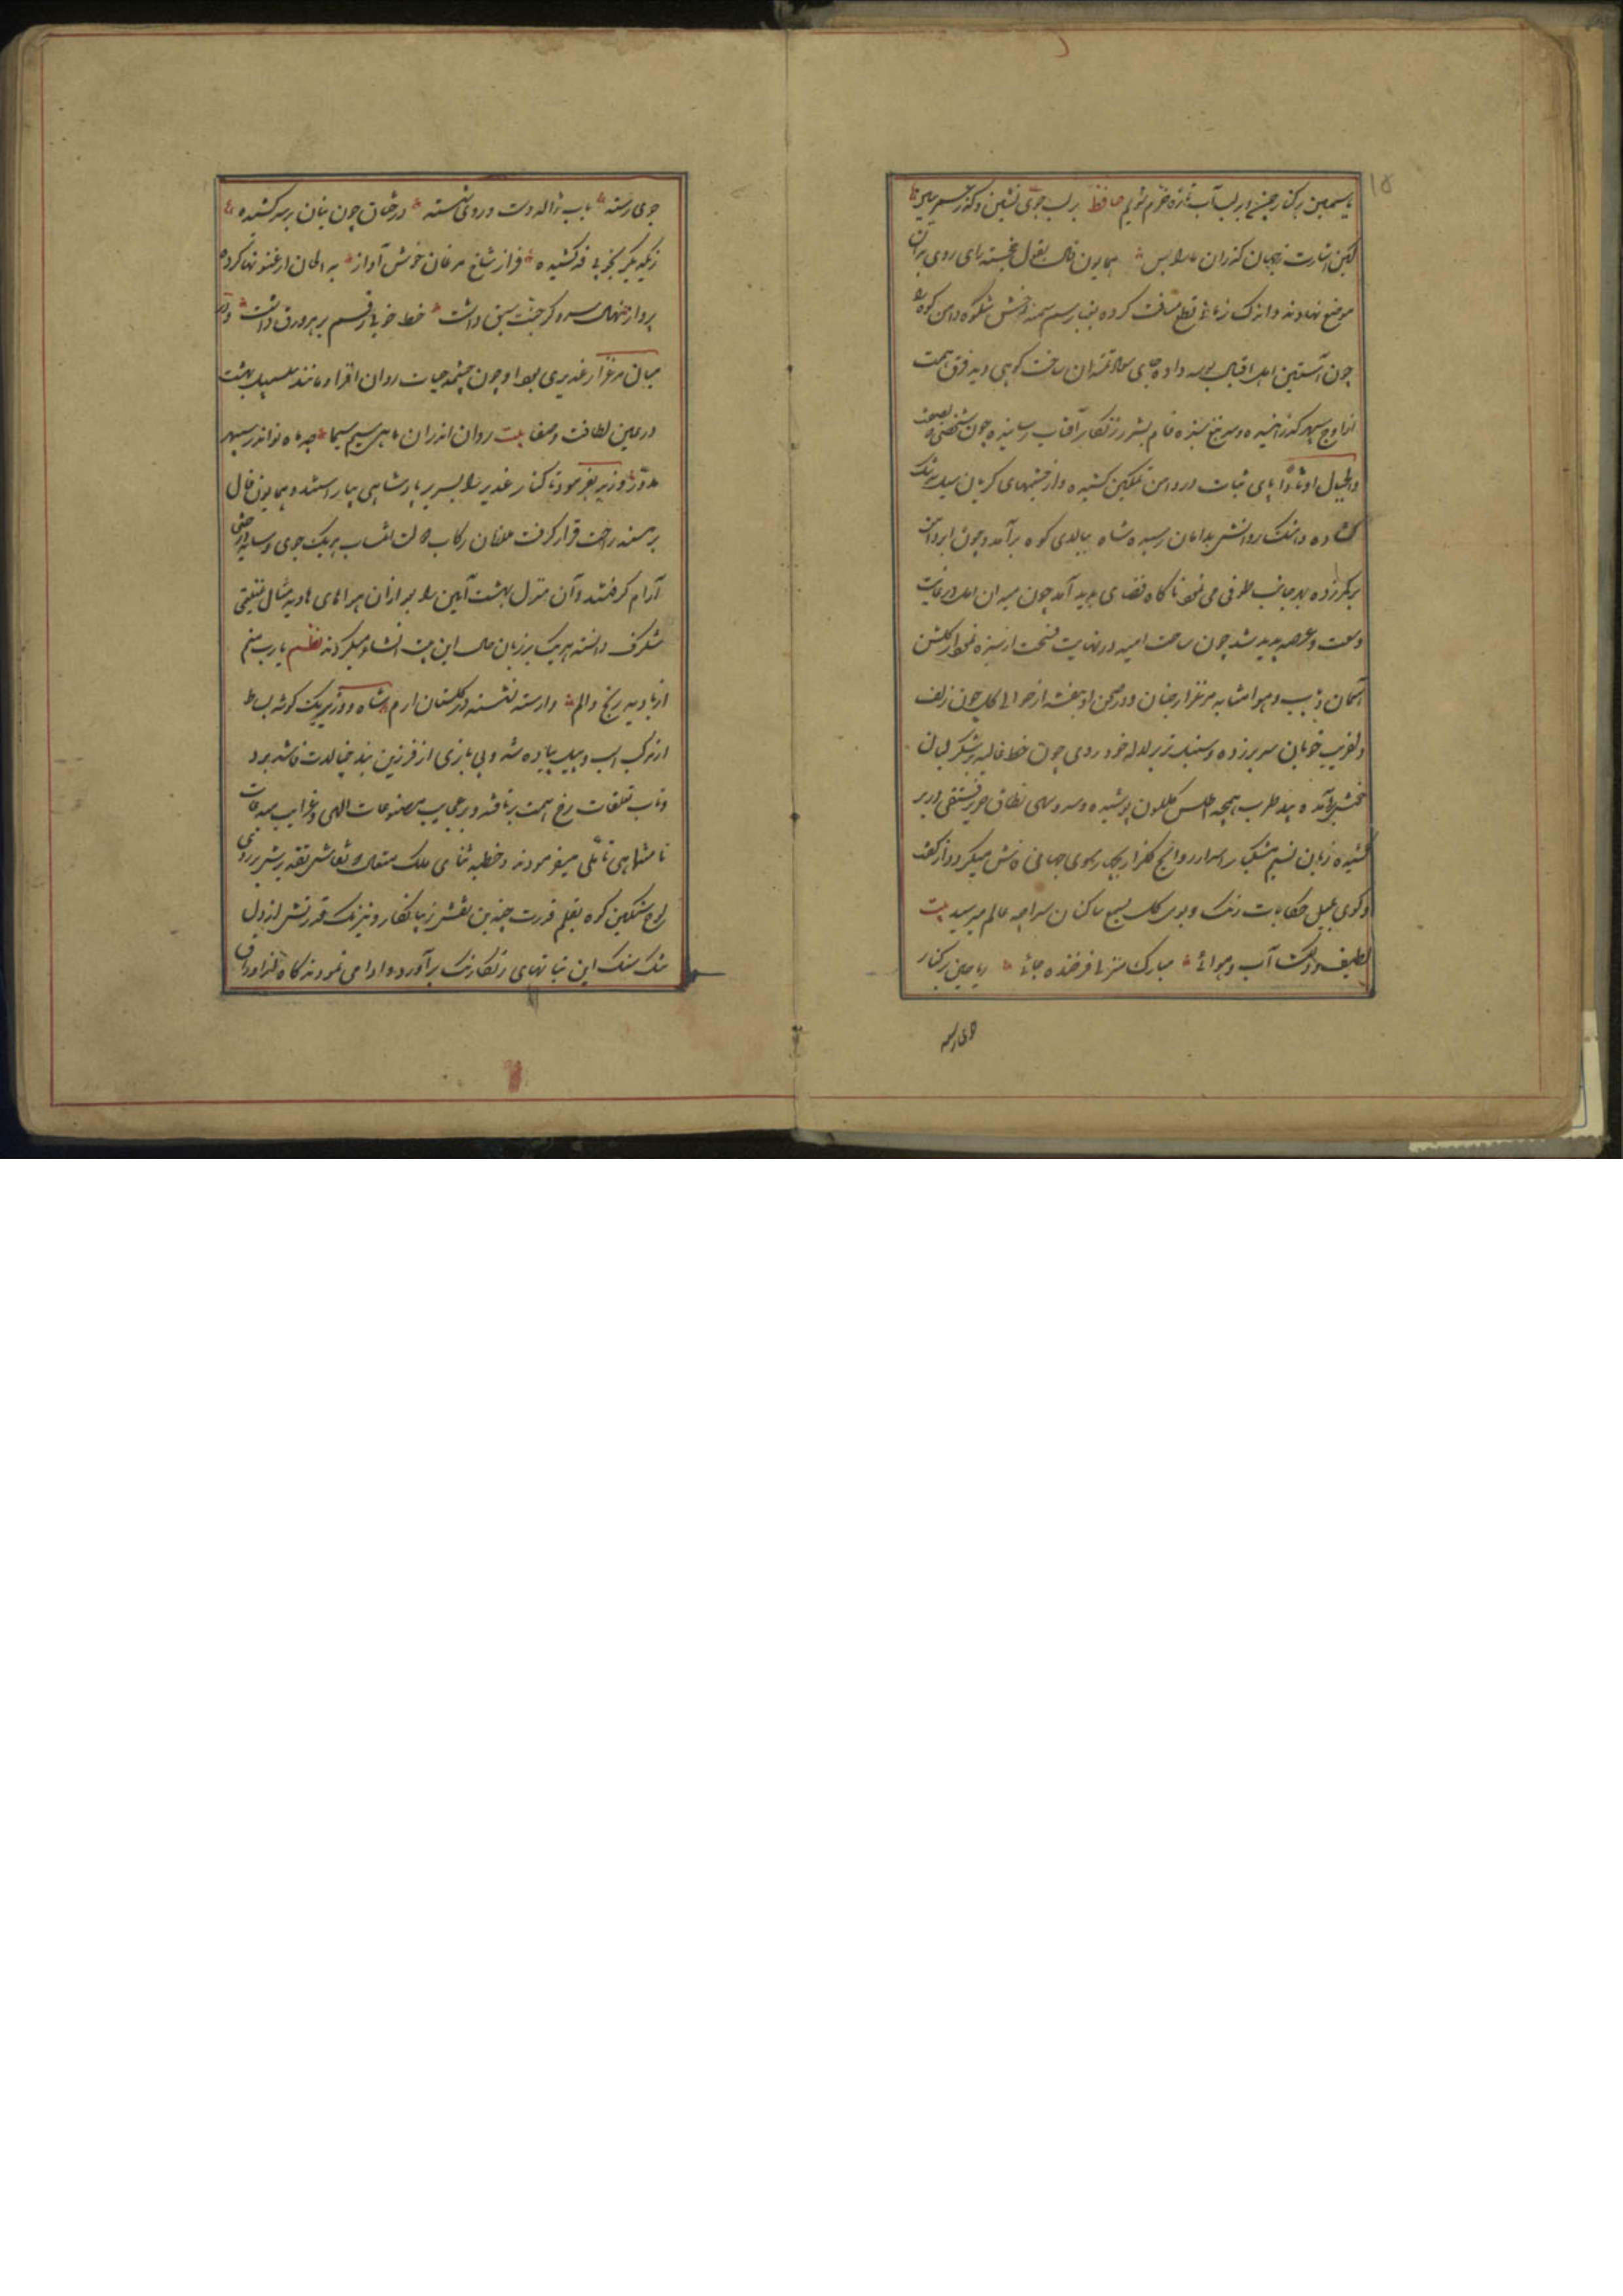 ۱۵
یاسمین بر کنار چینی و بر لب آب تازه و خرم شویم حافظ بر لب جوی نشین و گذر عمر ببین
کین اشارت ز جهان گذران ما را بس همایون فال بقول خجسته رای روی بران
موضع نهادند و اندک زمانی قطع مسافت کرده بغبار سم سمند رخش شکوه دامن کوه را
چون آستین اهل اقبال بوسه داده جای سعادتمندان ساخت کوهی دید فرق همت
از اوج سپهر گذرانیده و سر تیغ سبزه فام بسپر زرنگار آفتاب رسانیده چون شخصی بصفت
والجبال اوتادا پای ثبات در دامن تمکین کشیده و از چشمهای گریان سیل سرشک
گشاده و اشک روانش بدامان رسیده شاه ببالای کوه برآمد و چون ابر دامن
بر کمر زده بهر جانب طوفی می نمود ناگاه فضای پدید آمد چون میدان امل در غایت
وسعت و عرصه پدید شد چون ساحت امید در نهایت فسحت از سبزه نمودار گلشن
آسمان و زیب و هوا مشابه مرغزار جنان و در صحن او بنفشه از حوالی گل چون زلف
دلفریب خوبان سر بر زده و سنبل تر بر لاله خود روی چون خط غالیه بر شکر لبان
طرب همچه اطلس گلگون پوشیده و سرو سهی نطاق حریر فستقی در بر
کشیده زبان نسیم مشکبار اسرار روایح گلزار بچار سوی جهان فاش میکرد و از گفت
و گوی بلبل حکایات رنگ و بوی گل بسمع ساکنان سراچه عالم میرسید بیت
لطیف و دلکش آب و هوائی مبارک منزلی فرخنده جائی ریاحین بر کنار
جوی رسته
جوی رسته بآب ژاله دست و روی شسته درختان چون بتان بر سر کشیده
ز یکدیگر بخوبی قد کشیده فراز شاخ مرغان خوش آواز به الحان ارغنونها کرده
پرواز نهال سدره کز جنت سبق داشت خط خوبی رقم بر هر ورق داشت و در
میان مرغزار غدیری بود او چون چشمه حیات روان افزا و مانند سلسبیل بهشت
در عین لطافت و صفا بیت روان اندران ماهی سیم سیما چو ماه نو اندر سپهر
مدور وزیر بفرمود تا کنار غدیر را بسریر پادشاهی بیاراستند و همایون فال
بر مسند راحت قرار گرفت ملازمان رکاب دولت انتساب هر یک جوی و سایه درختی
آرام گرفتند و آن منزل بهشت آیین را بعد از آن هوا های هاویه مثال غنیمتی
شگرف دانسته هر یک بر زبان حال این بیت انشاد میکردند نظم یا رب منم
از بادیه رنج و الم وا رسته نشسته در گلستان ارم شاه و وزیر یک گوشه بساط
از مرکب اسب و پیل پیاده شده و بی بازی از فرزین بند خیالات فاسد
و تاب تعلقات رخ همت بر تافته و بر عجایب مصنوعات الهی و غرایب مبدعات
نا متناهی تاملی میفرمودند و خطبه ثنای ملک متعال که نقاش تقدیرش بر روی
لوح سنگین کوه بقلم قدرت چندین نقش زیبا نگار و نیرنگ قدرتش از دل
تنگ سنگ این نباتهای رنگارنگ برآورد ادا می نمودند گاه از اوراق